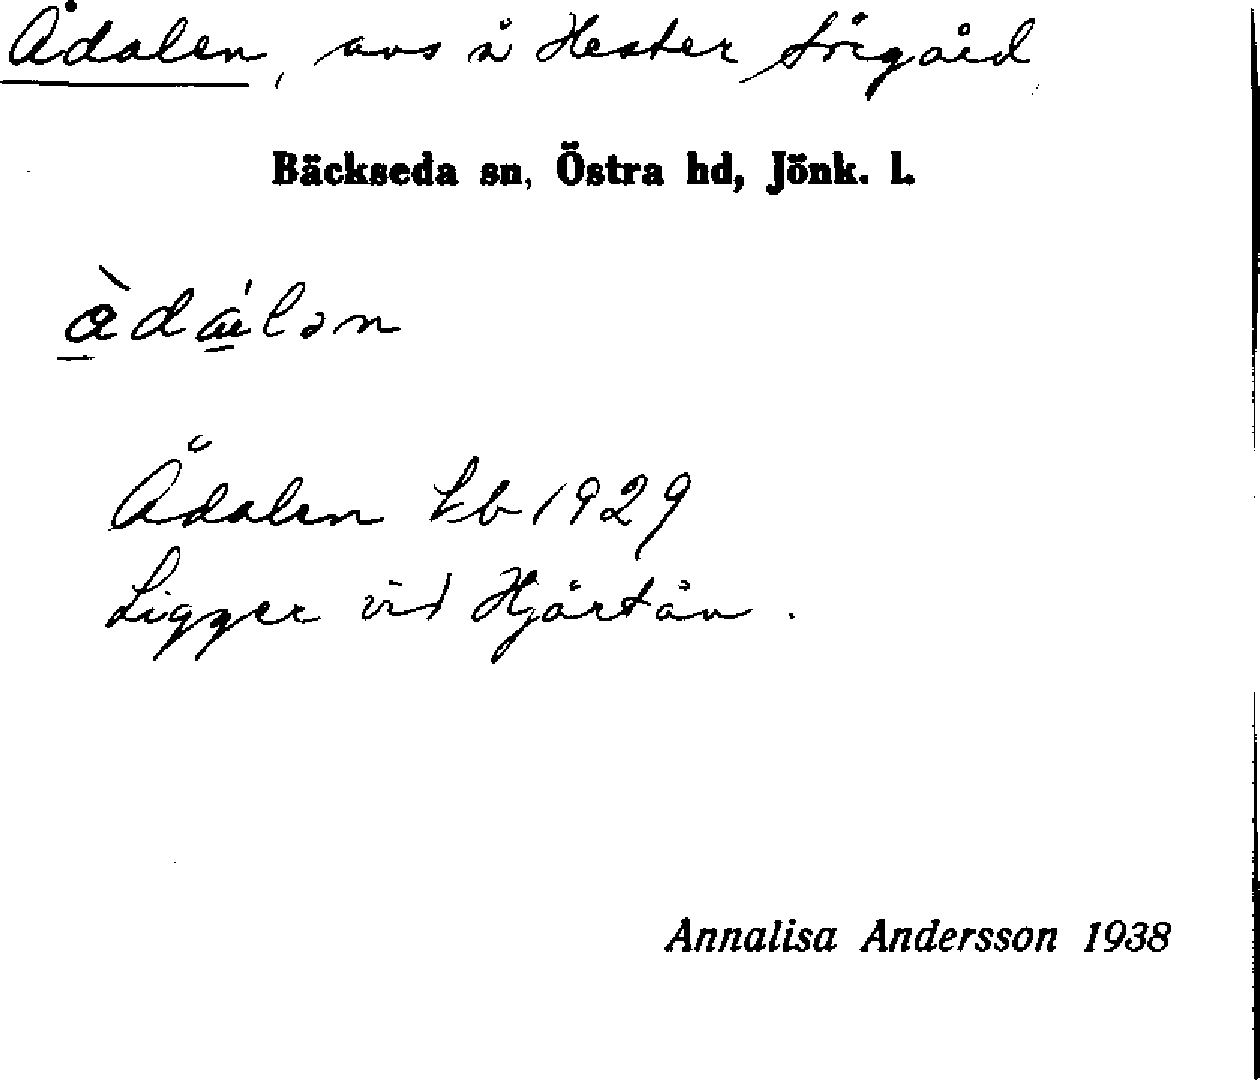 Ådalen, avs å Hester Sörgård
Bäckseda sn, Östra hd, Jönk. l.
Ådalen kb 1929
Ligger vid Hjärtån.
Annalisa Andersson 1938